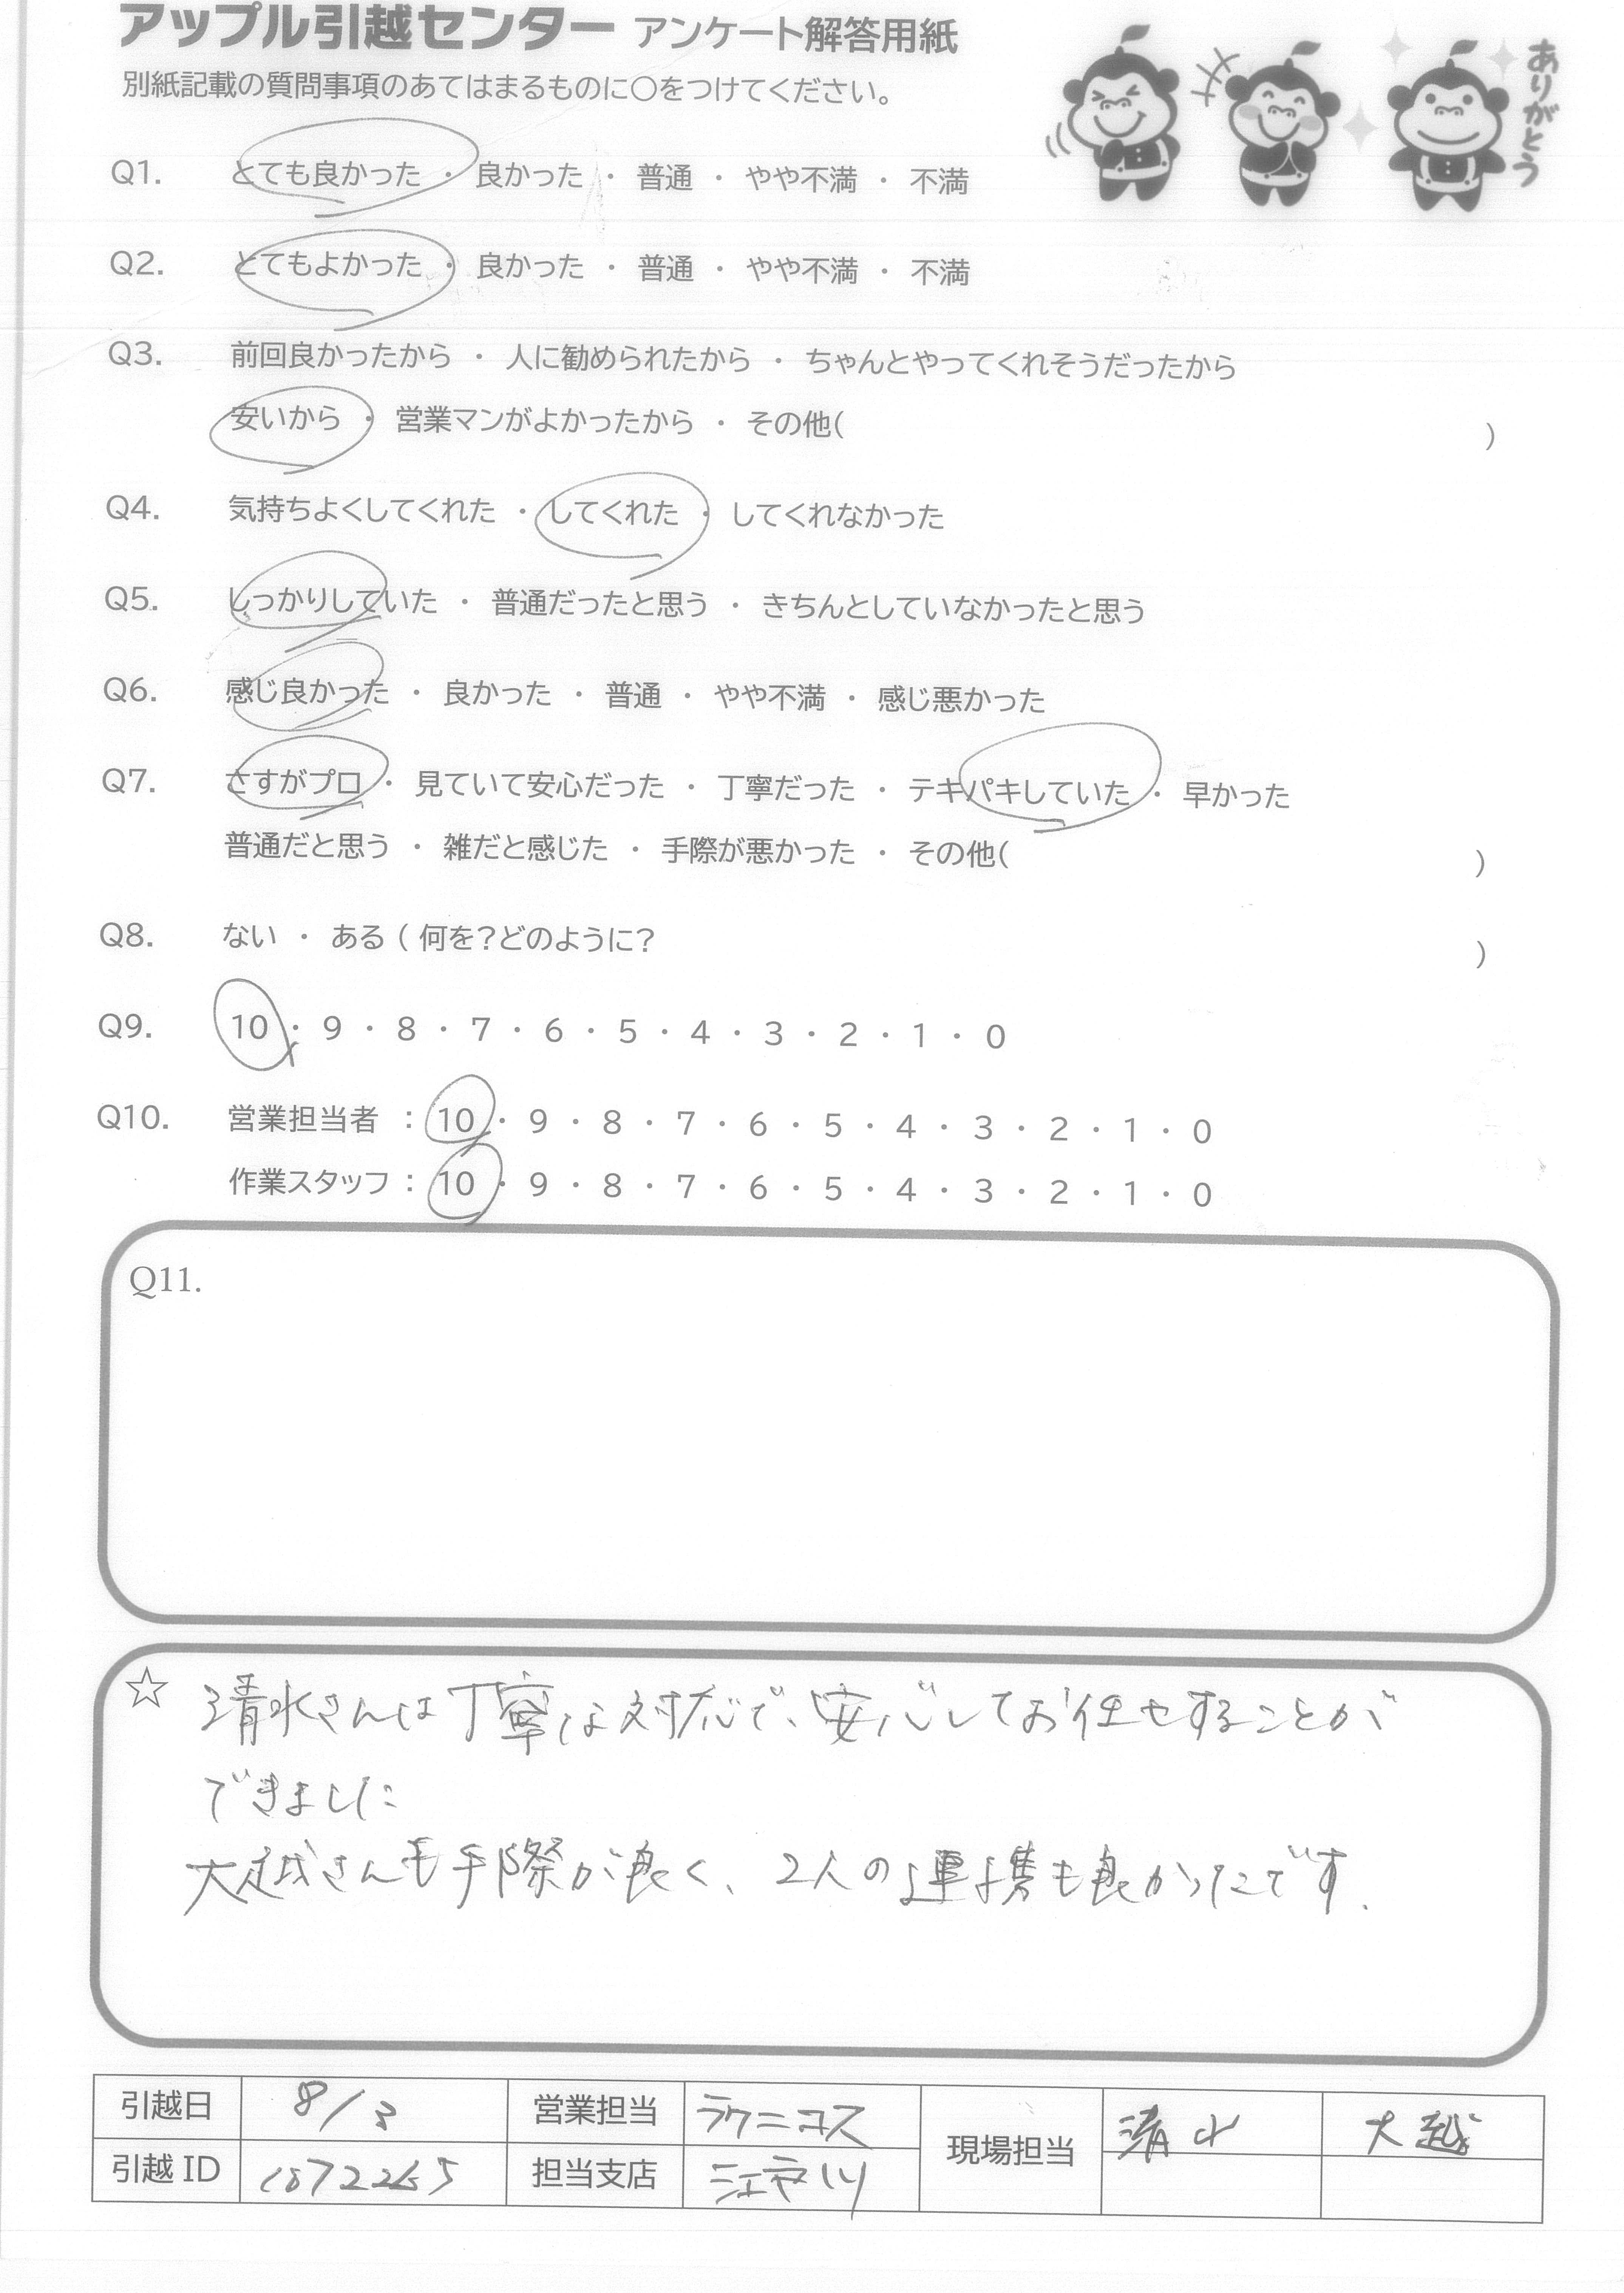 アップル引越センター アンケート解答用紙
ありがとう
別紙記載の質問事項のあてはまるものに〇をつけてください。
Q1. とても良かった ・ 良かった ・ 普通 ・ やや不満 ・ 不満
Q2. とてもよかった ・ 良かった ・ 普通 ・ やや不満 ・ 不満
Q3. 前回良かったから ・ 人に勧められたから ・ ちゃんとやってくれそうだったから
安いから ・ 営業マンがよかったから ・ その他( )
Q4. 気持ちよくしてくれた ・ してくれた ・ してくれなかった
Q5. しっかりしていた ・ 普通だったと思う ・ きちんとしていなかったと思う
Q6. 感じ良かった ・ 良かった ・ 普通 ・ やや不満 ・ 感じ悪かった
Q7. さすがプロ ・ 見ていて安心だった ・ 丁寧だった ・ テキパキしていた ・ 早かった
普通だと思う ・ 雑だと感じた ・ 手際が悪かった ・ その他( )
Q8. ない ・ ある ( 何を?どのように? )
Q9. 10 ・ 9 ・ 8 ・ 7 ・ 6 ・ 5 ・ 4 ・ 3 ・ 2 ・ 1 ・ 0
Q10. 営業担当者 : 10 ・ 9 ・ 8 ・ 7 ・ 6 ・ 5 ・ 4 ・ 3 ・ 2 ・ 1 ・ 0
作業スタッフ : 10 ・ 9 ・ 8 ・ 7 ・ 6 ・ 5 ・ 4 ・ 3 ・ 2 ・ 1 ・ 0
Q11.
☆ 清水さんは丁寧な対応で、安心してお任せすることが
できました
大越さんも手際が良く、2人の連携も良かったです.
引越日 8/3 営業担当 ラクニコス 現場担当 清水 大越
引越 ID 1872265 担当支店 江戸川